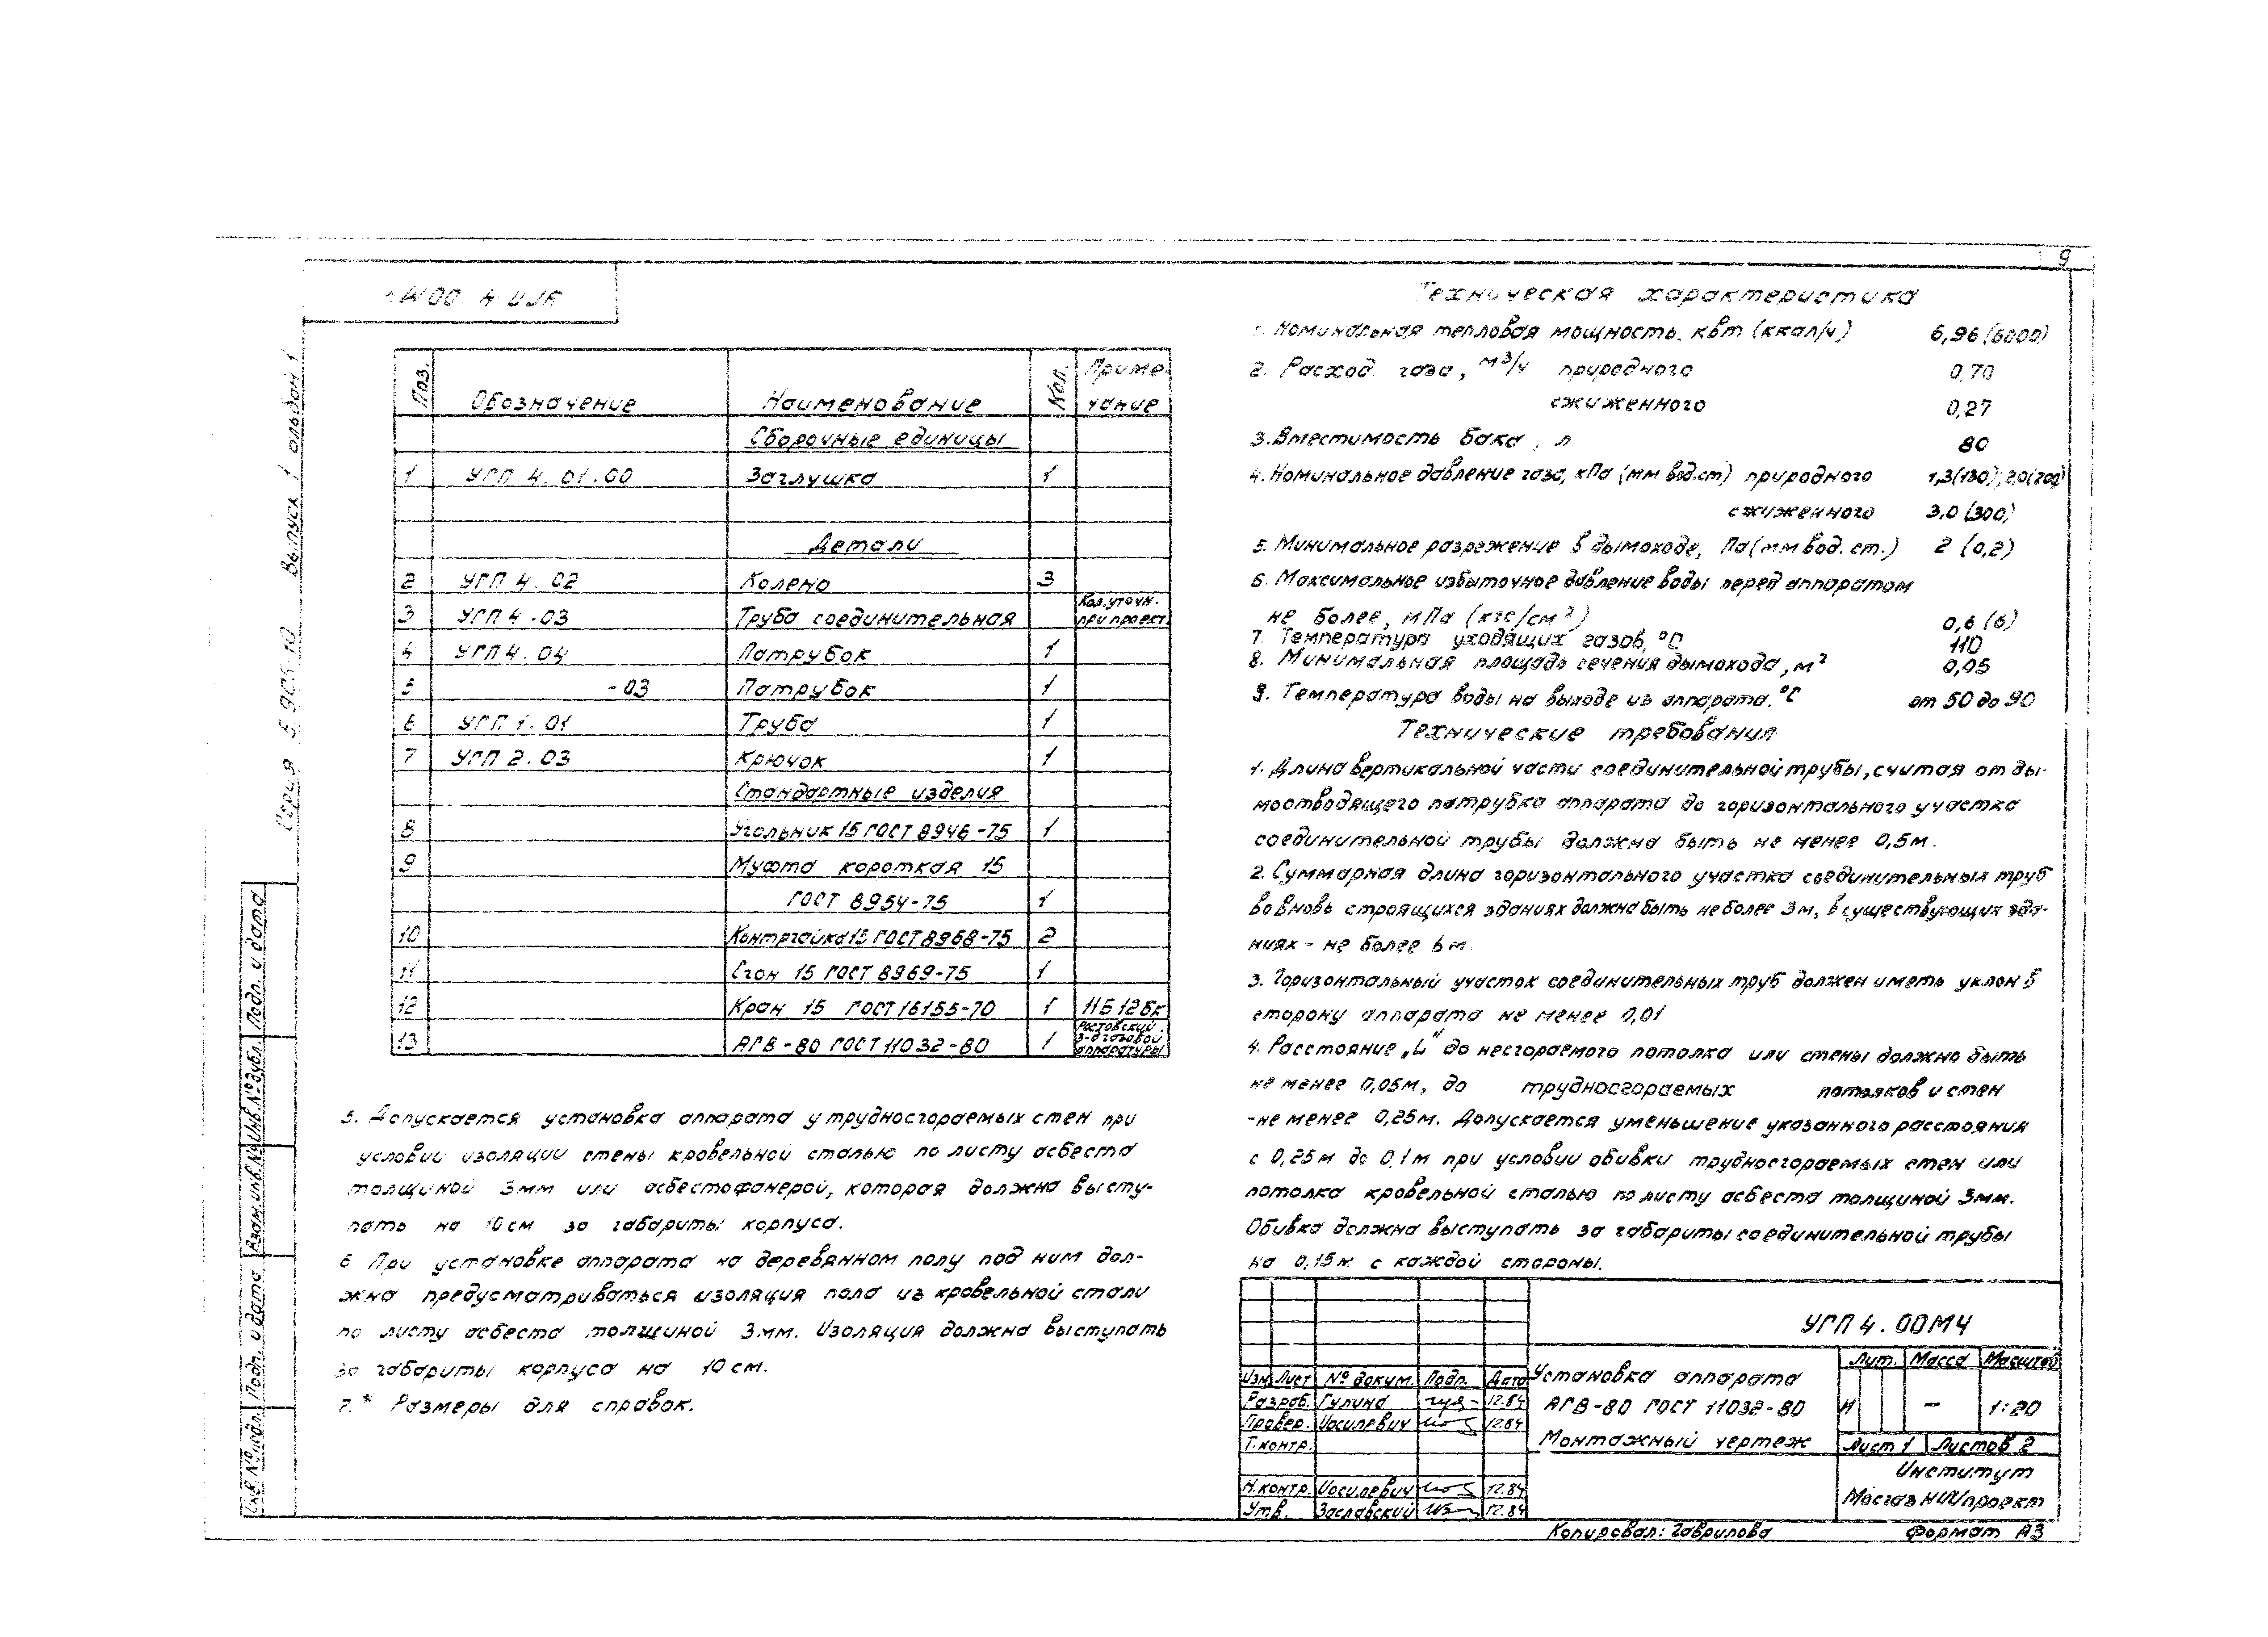 9
Серия 5.905-10 Выпуск 1 альбом 1
Поз. Обозначение Наименование Кол. Приме-
чание
Сборочные единицы
1 УГП 4.01.00 Заглушка 1
Детали
2 УГП 4.02 Колено 3
3 УГП 4.03 Труба соединительная Кол. уточн. при проект.
4 УГП 4.04 Патрубок 1
5 -03 Патрубок 1
6 УГП 1.01 Труба 1
7 УГП 2.03 Крючок 1
Стандартные изделия
8 Угольник 15 ГОСТ 8946-75 1
9 Муфта короткая 15
ГОСТ 8954-75 1
10 Контргайка 15 ГОСТ 8968-75 2
11 Сгон 15 ГОСТ 8969-75 1
12 Кран 15 ГОСТ 16155-70 1 11Б12бк
13 АГВ-80 ГОСТ 11032-80 1 Ростовский з-д газовой аппаратуры
5. Допускается установка аппарата у трудносгораемых стен при
условии изоляции стены кровельной сталью по листу асбеста
толщиной 3мм или асбестофанерой, которая должна высту-
пать на 10 см за габариты корпуса.
6 При установке аппарата на деревянном полу под ним дол-
жна предусматриваться изоляция пола из кровельной стали
по листу асбеста толщиной 3мм. Изоляция должна выступать
за габариты корпуса на 10 см.
7.* Размеры для справок.
Техническая характеристика
1. Номинальная тепловая мощность, квт (ккал/ч) 6,96 (6000)
2. Расход газа, м³/ч природного 0,70
сжиженного 0,27
3. Вместимость бака, л 80
4. Номинальное давление газа, кПа (мм вод.ст) природного 1,3(130); 2,0(200)
сжиженного 3,0 (300)
5. Минимальное разрежение в дымоходе, Па (мм вод. ст.) 2 (0,2)
6. Максимальное избыточное давление воды перед аппаратом
не более, мПа (кгс/см²) 0,6 (6)
7. Температура уходящих газов, °С 110
8. Минимальная площадь сечения дымохода, м² 0,05
9. Температура воды на выходе из аппарата, °С от 50 до 90
Технические требования
1. Длина вертикальной части соединительной трубы, считая от ды-
моотводящего патрубка аппарата до горизонтального участка
соединительной трубы должна быть не менее 0,5м.
2. Суммарная длина горизонтального участка соединительных труб
во вновь строящихся зданиях должна быть не более 3м, в существующих зда-
ниях - не более 6м.
3. Горизонтальный участок соединительных труб должен иметь уклон в
сторону аппарата не менее 0,01
4. Расстояние „L" до несгораемого потолка или стены должно быть
не менее 0,05м, до трудносгораемых потолков и стен
-не менее 0,25м. Допускается уменьшение указанного расстояния
с 0,25м до 0,1м при условии обивки трудносгораемых стен или
потолка кровельной сталью по листу асбеста толщиной 3мм.
Обивка должна выступать за габариты соединительной трубы
на 0,15м с каждой стороны.
УГП 4.00МЧ
Изм. Лист № докум. Подп. Дата
Разраб. Гулина 12.84
Провер. Иосилевич 12.84
Т.контр.
Н.контр. Иосилевич 12.84
Утв. Заславский 12.84
Установка аппарата
АГВ-80 ГОСТ 11032-80
Монтажный чертеж
Лит. Масса Масштаб
И - 1:20
Лист 1 Листов 2
Институт
МосгазНИИпроект
Копировал: Гаврилова Формат А3
Инв № подл. Подп. и дата Взам. инв № Инв № дубл. Подп. и дата